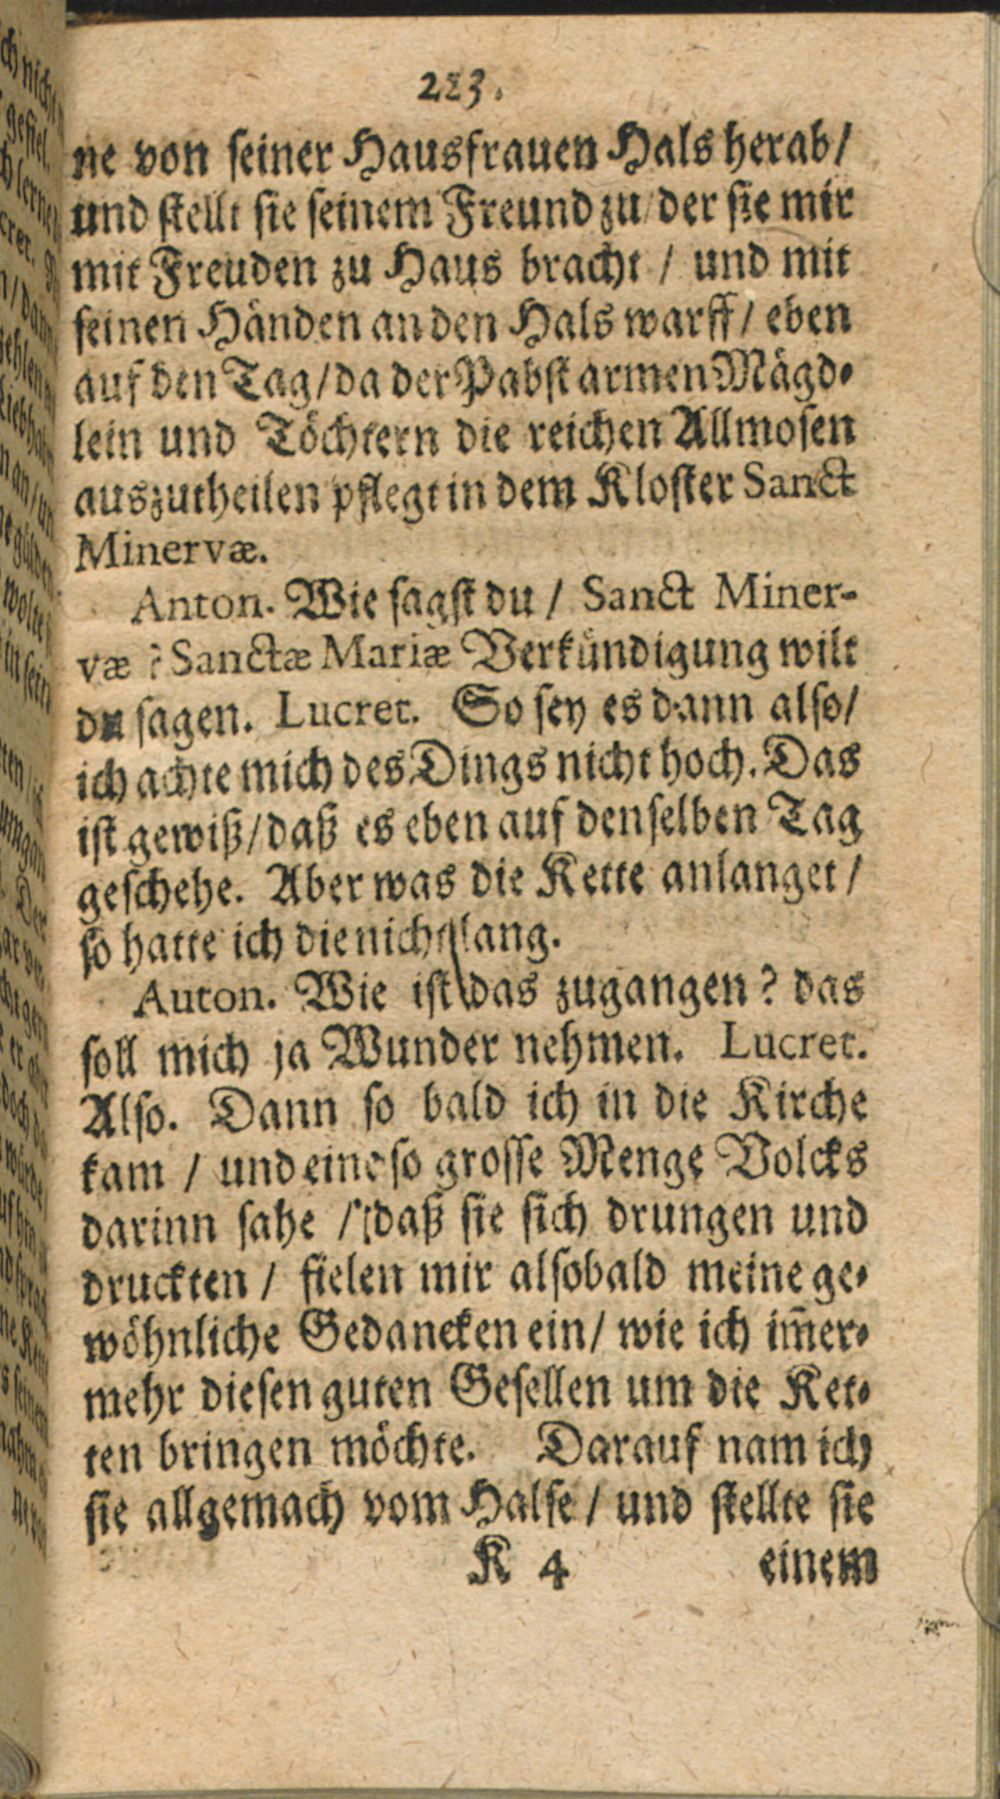 223.
ne von seiner Hausfrauen Hals herab/
und stellt sie seinem Freund zu/ der sie mir
mit Freuden zu Haus bracht / und mit
seinen Händen an den Hals warff/ eben
auf den Tag/ da der Pabst armen Mägd-
lein und Töchtern die reichen Allmosen
auszutheilen pflegt in dem Kloster Sanct
Minervæ.
Anton. Wie sagst du / Sanct Miner-
væ ? Sanctæ Mariæ Verkündigung wilt
du sagen. Lucret. So sey es dann also/
ich achte mich des Dings nicht hoch. Das
ist gewiß/ daß es eben auf denselben Tag
geschehe. Aber was die Kette anlanget /
so hatte ich die nicht lang.
Auton. Wie ist das zugangen? das
soll mich ja Wunder nehmen. Lucret.
Also. Dann so bald ich in die Kirche
kam / und eine so grosse Menge Volcks
darinn sahe / daß sie sich drungen und
druckten / fielen mir alsobald meine ge-
wöhnliche Gedancken ein/ wie ich im̄er-
mehr diesen guten Gesellen um die Ket-
ten bringen möchte. Darauf nam ich
sie allgemach vom Halse / und stellte sie
K 4 einem